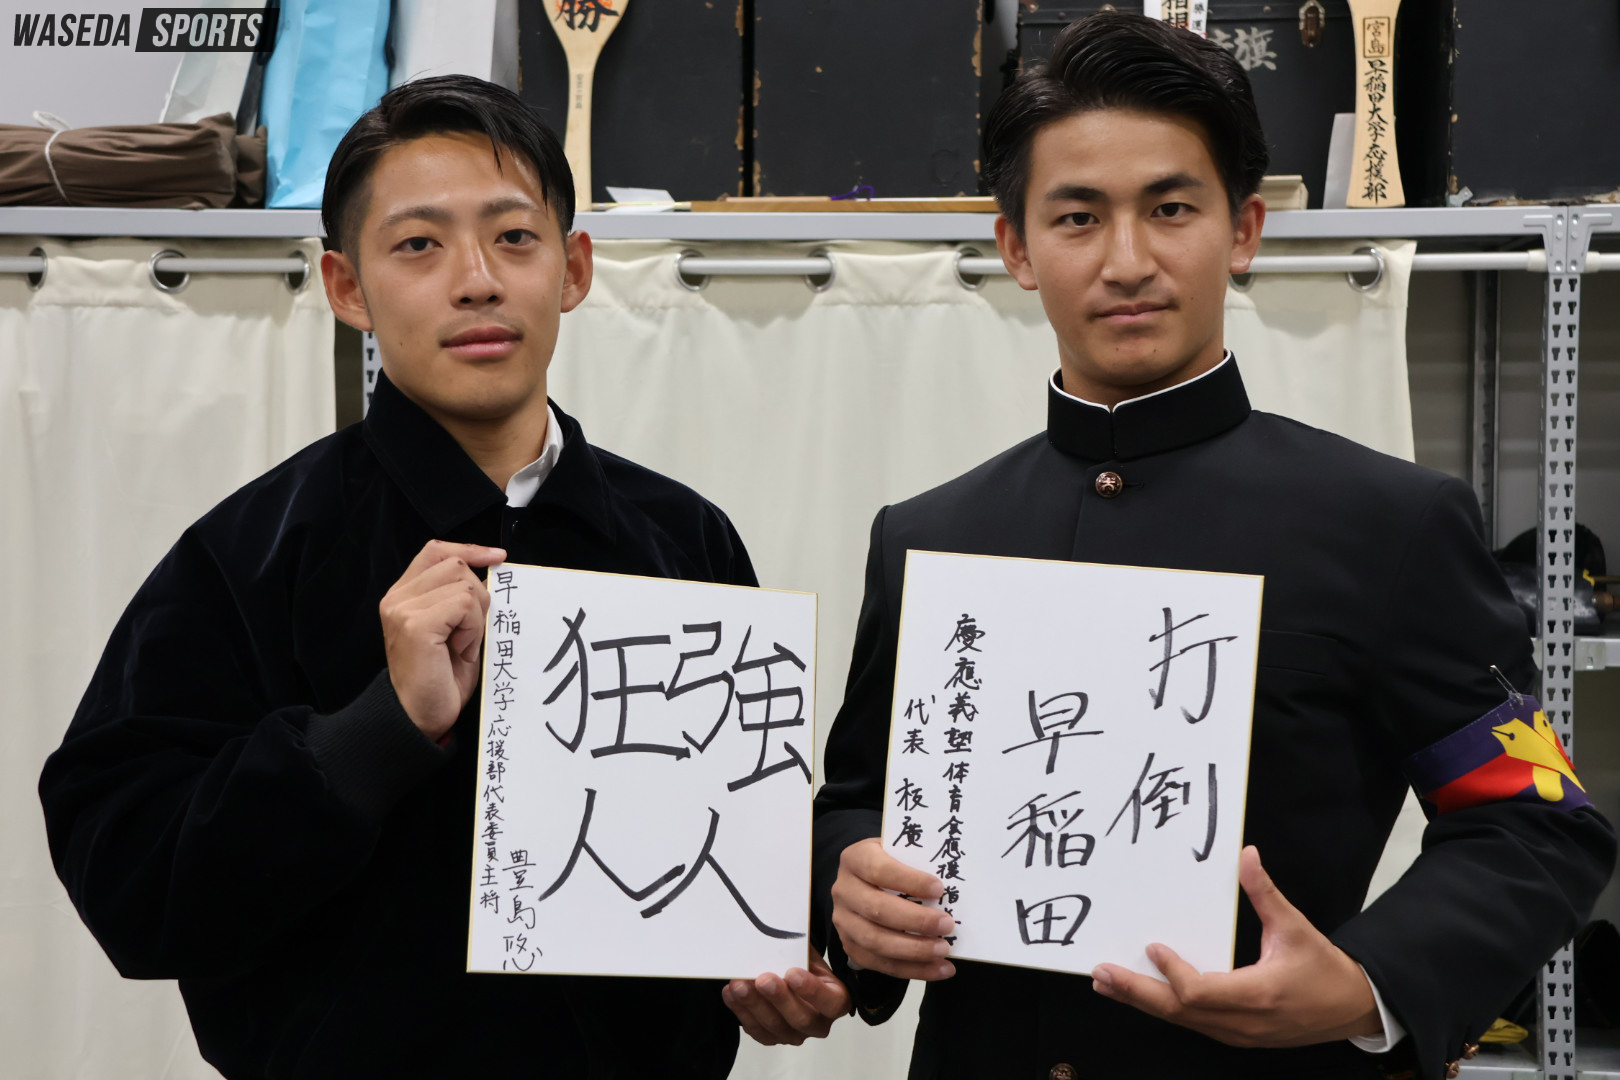 WASEDA SPORTS
勝
箱根
旗
宮島
早稲田大学応援部
強人
狂人
早稲田大学応援部代表委員主将
豊島悠
打倒
早稲田
慶應義塾体育会應援指
代表 板廣